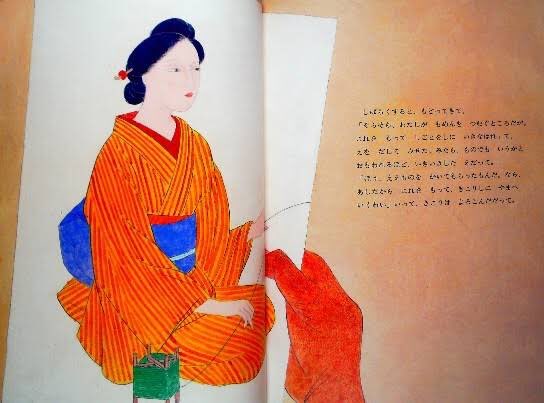 しばらくすると、もどってきて、
「そらそら、わたしが もめんを つむぐところだが。
これを もって しごとをしに いきなはれ」て、
えを だして みせた。みたら、ものでも いうかと
おもわれるほど、いきいきした えだって。
「ほう、ええものを かいてもらったもんだ。なら、
あしたから これを もって、きこりしに やまへ
いくわい」いって、きこりは よろこんだだって。